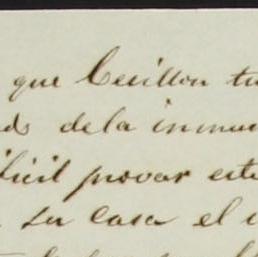 que Cecillon tu
ds dela inmu
ificil provar este
su casa el